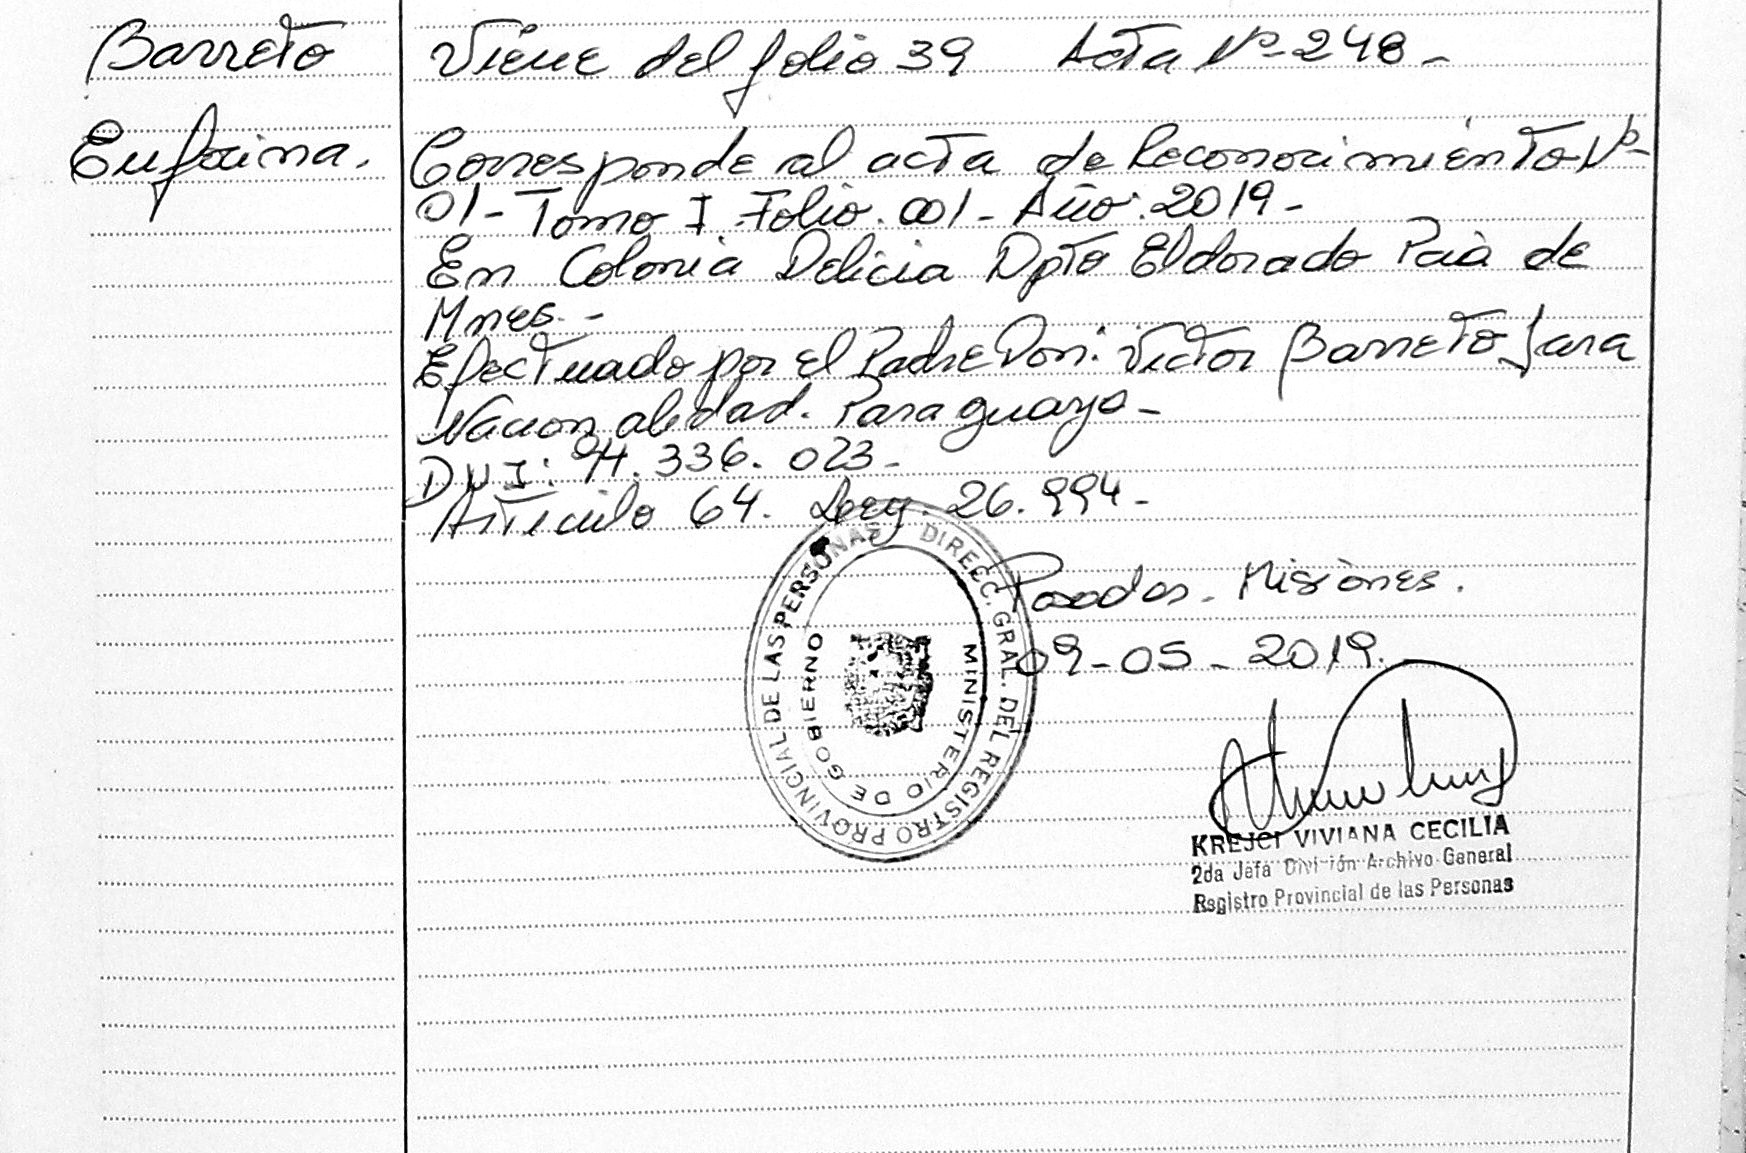 Barreto
Viene del folio 39 Acta Nº 248-
Eufrcina.
Corresponde al acta de Reconocimiento Nº-
01- Tomo I Folio. 001- Año. 2019-
En Colonia Delicia Dpto Eldorado Pcia de
Mnes.-
Efectuado por el Padre Don: Victor Barreto Jara
Nacionalidad. Paraguayo-
DUI: 94.336.023-
Articulo 64. Ley. 26.994-
Posadas. Misiones.
09-05-2019.
DIRECC. GRAL. DEL REGISTRO PROVINCIAL DE LAS PERSONAS
MINISTERIO DE GOBIERNO
KREJCI VIVIANA CECILIA
2da Jefa División Archivo General
Registro Provincial de las Personas